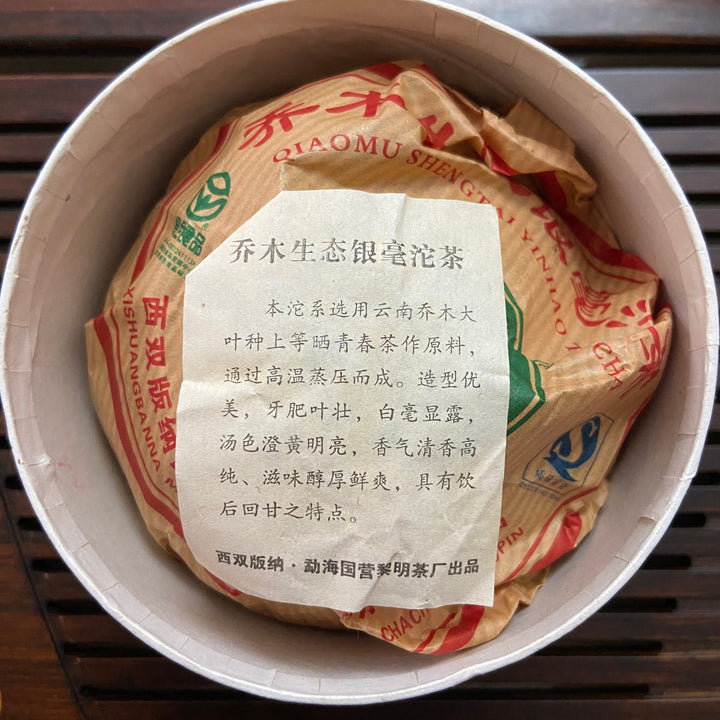 乔木生
QIAOMU SHENGTAI YINHAO T
CHA
西双版纳
XISHUANGBANNA
乔木生态银毫沱茶
本沱系选用云南乔木大
叶种上等晒青春茶作原料,
通过高温蒸压而成。造型优
美,牙肥叶壮,白毫显露,
汤色澄黄明亮,香气清香高
纯、滋味醇厚鲜爽,具有饮
后回甘之特点。
西双版纳·勐海国营黎明茶厂出品